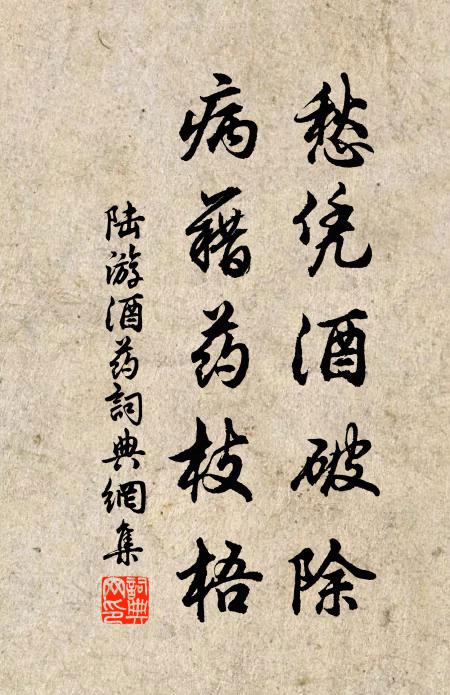 愁凭酒破除
病藉药枝梧
陆游酒药词典網集
词典
网印